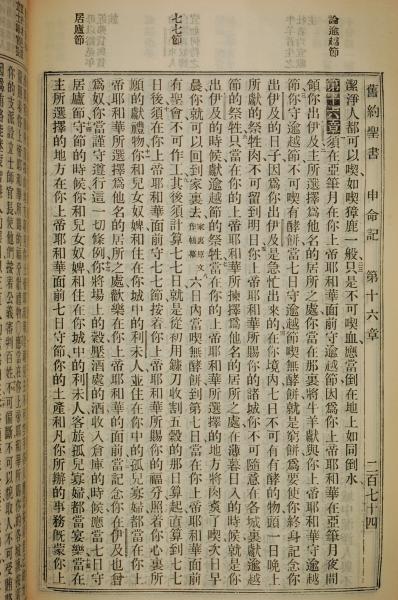 舊約聖書　申命記　第十六章　二百七十四
論逾越節
七七節
居廬節
潔淨人都可以喫如喫獐鹿一般只是不可喫血應當倒在地上如同倒水
第十六章須在亞筆月在你上帝耶和華面前守逾越節因爲你上帝耶和華在亞筆月夜間
領你出伊及主所選擇爲他名的居所之處你當在那裏將牛羊獻與你上帝耶和華守逾越
節你守逾越節不可喫有酵餅當七日守逾越節喫無酵餅就是窮餅爲要使你終身記念你
出伊及的日子因爲你出伊及是急忙出來的在你境內七日不可有有酵的物頭一日晚上
所獻的祭牲肉不可留到明日你上帝耶和華所賜你的諸城你不可隨意在各城裏獻逾越
節的祭牲只當在你的上帝耶和華所揀擇爲他名的居所之處在薄暮日入的時候就是你
出伊及的時候獻逾越節的祭牲當在你上帝耶和華所選擇的地方將肉炙了喫次日早
晨你就可以回到家裏去家裏原文作帳幕六日內當喫無酵餅到第七日當在你上帝耶和華面前
有聖會不可作工其後須計算七七日就是從初用鐮刀收割五穀的那日算起直算到七七
日後須在你上帝耶和華面前守七七節按着你上帝耶和華所賜你的福分照着你心裏所
願的獻禮物你和兒女奴婢和住在你城中的利未人並住在你中的孤兒寡婦都當在你上
帝耶和華所選擇爲他名的居所之處歡樂在你上帝耶和華的面前當記念你在伊及也曾
爲奴你當謹守遵行這一切條例你將場上的穀壓酒處的酒收入倉庫的時候應當七日守
居廬節守節的時候你和兒女奴婢和住在你城中的利未人客旅孤兒寡婦都當宴樂當在
主所選擇的地方在你上帝耶和華面前七日守節你的土產和凡你所辦的事務旣蒙你上